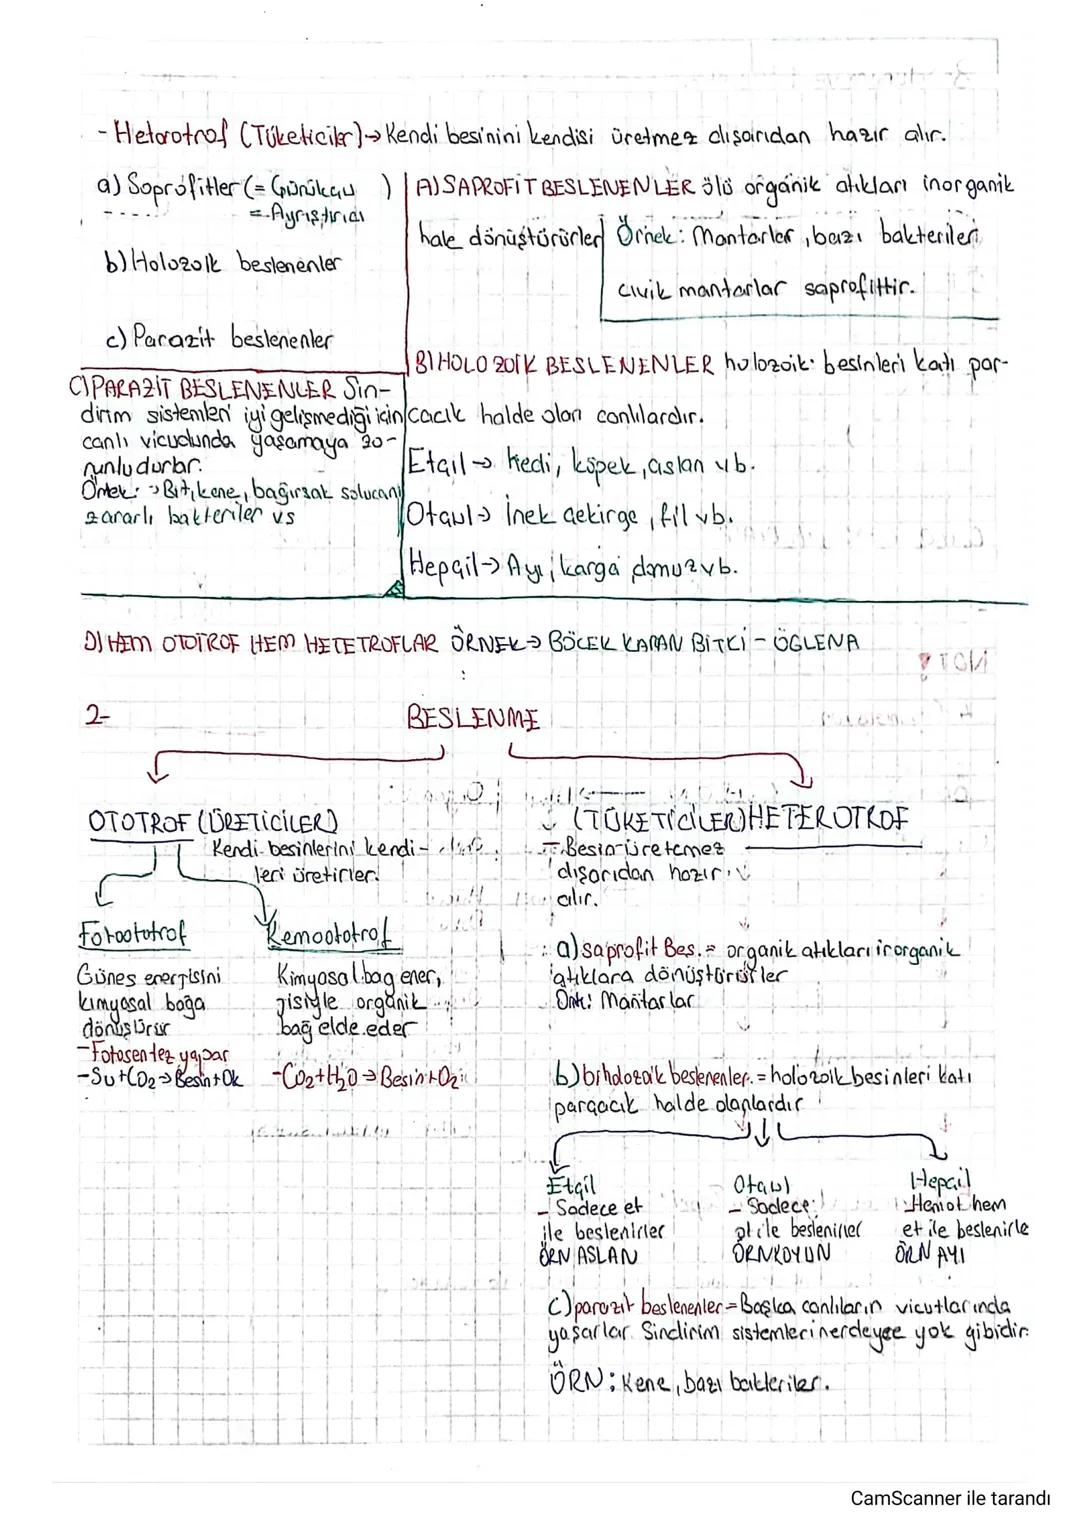 - Heterotrof (Tüketiciler)→ Kendi besinini kendisi üretmez dışarıdan hazır alır.
a) Saprofitler (= Çürükçül )
= Ayrıştırıcı
b) Holozoik beslenenler
c) Parazit beslenenler
A) SAPROFİT BESLENENLER ölü organik atıkları inorganik
hale dönüştürürler
Örnek: Mantarlar, bazı bakterileri
cıvık mantarlar saprofittir.
B) HOLOZOİK BESLENENLER holozoik: besinleri katı par-
cacık halde olan canlılardır.
Etçil → Kedi, köpek, aslan vb.
Otçul → İnek çekirge, fil vb.
Hepçil → Ayı, karga domuz vb.
C) PARAZİT BESLENENLER Sin-
dirim sistemleri iyi gelişmediği için
canlı vicudunda yaşamaya zo-
runludurlar.
Örnek: → Bit, kene, bağırsak solucanı
zararlı bakteriler vs
D) HEM OTOTROF HEM HETETROFLAR ÖRNEK → BÖCEK KAPAN BİTKİ - ÖGLENA
2- BESLENME
OTOTROF (ÜRETİCİLER)
Kendi besinlerini kendi-
leri üretirler.
Fotoototrof
Güneş enerjisini
kimyasal bağa
dönüştürür
- Fotosentez yapar
- Su+CO2 → Besin+Ok
Kemoototrof
Kimyasal bağ ener,
jisiyle organik
bağ elde eder
- CO2+H2O → Besin+O2
(TÜKETİCİLER) HETEROTROF
- Besin üretemez
dışarıdan hazır
alır.
a) saprofit Bes. = organik atıkları inorganik
atıklara dönüştürürler
Örn: Mantarlar
b) holozoik beslenenler. = holozoik besinleri katı
parçacık halde olanlardır
Etçil
- Sadece et
ile beslenirler
ÖRN ASLAN
Otçul
- Sadece
ot ile beslenirler
ÖRN KOYUN
Hepçil
- Hem ot hem
et ile beslenirle
ÖRN AYI
c) parazit beslenenler = Başka canlıların vicutlarında
yaşarlar. Sindirim sistemleri nerdeyse yok gibidir.
ÖRN: Kene, bazı bakteriler.
CamScanner ile tarandı